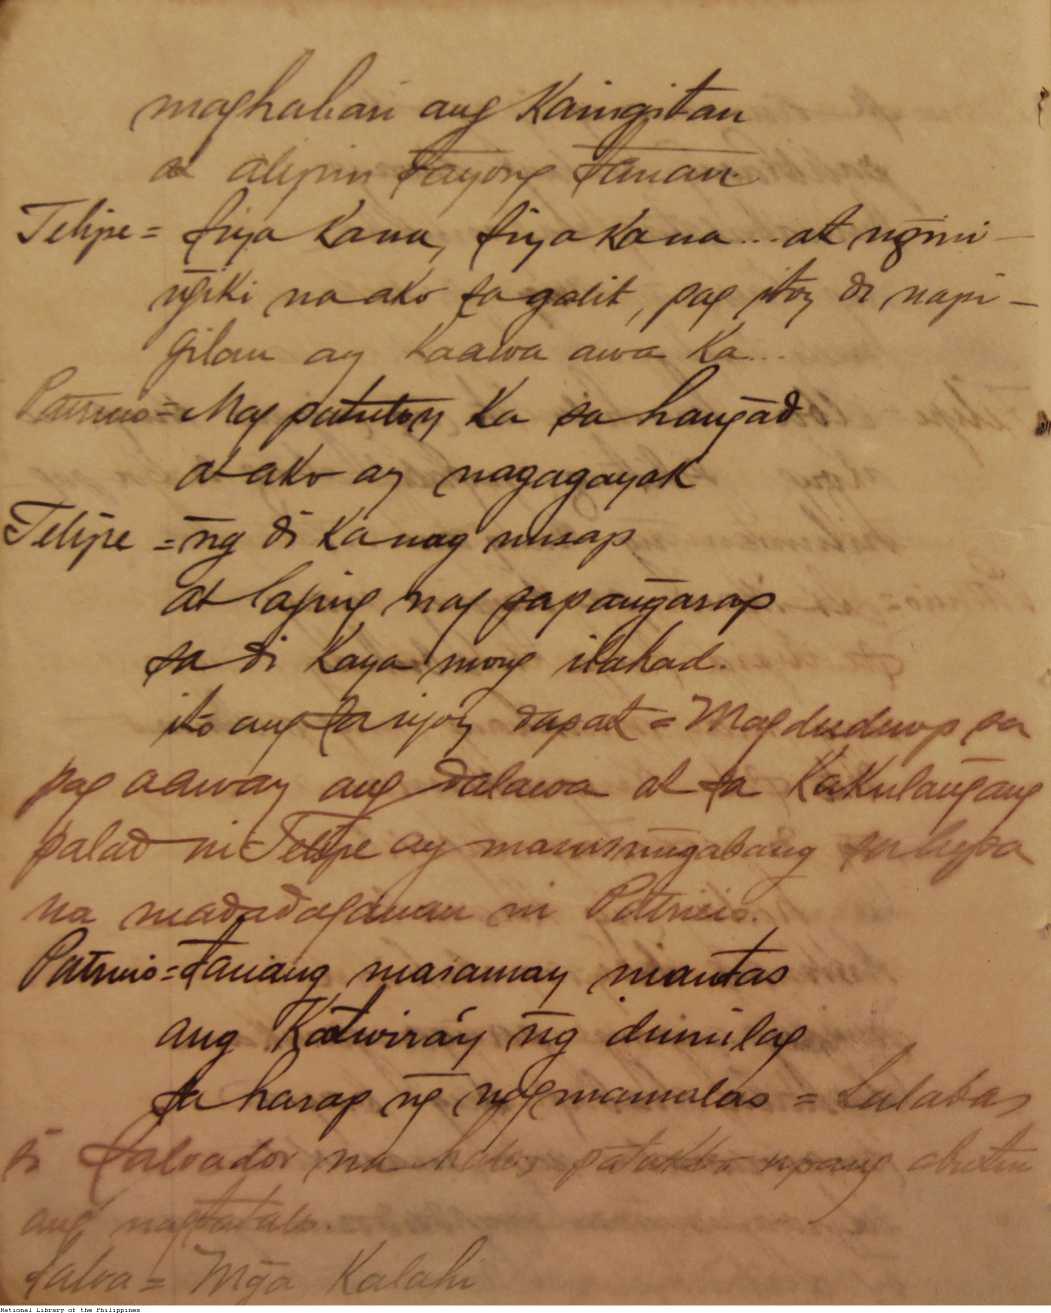 maghahari ang Kaingitan
at alipin tayong tanan.
Felipe = Siya kana, siya kana... at ngmi-
ngiki na ako sa galit, pag itoy di napi-
gilan ay kaawa awa ka...
Patricio = Mag patuloy ka sa hangad
at ako ay nagagayak
Felipe = ng di ka nag uusap
at laging nag sasapangarap
sa di kaya mong ilahad.
ito ang sa iyoy dapat = Magdududop sa
pag aaway ang dalawa at sa kakulangang
palad ni Felipe ay masusungabang sa lupa
na madadaganan ni Patricio.
Patricio = Tanang masamay mautas
ang Katwiráy ng dumilag
sa harap ng nagmamalas = Lalabas
si Salvador na halos patakbo upang abutin
ang nagtatalo.
Salva = Mga Kalahi
National Library of the Philippines